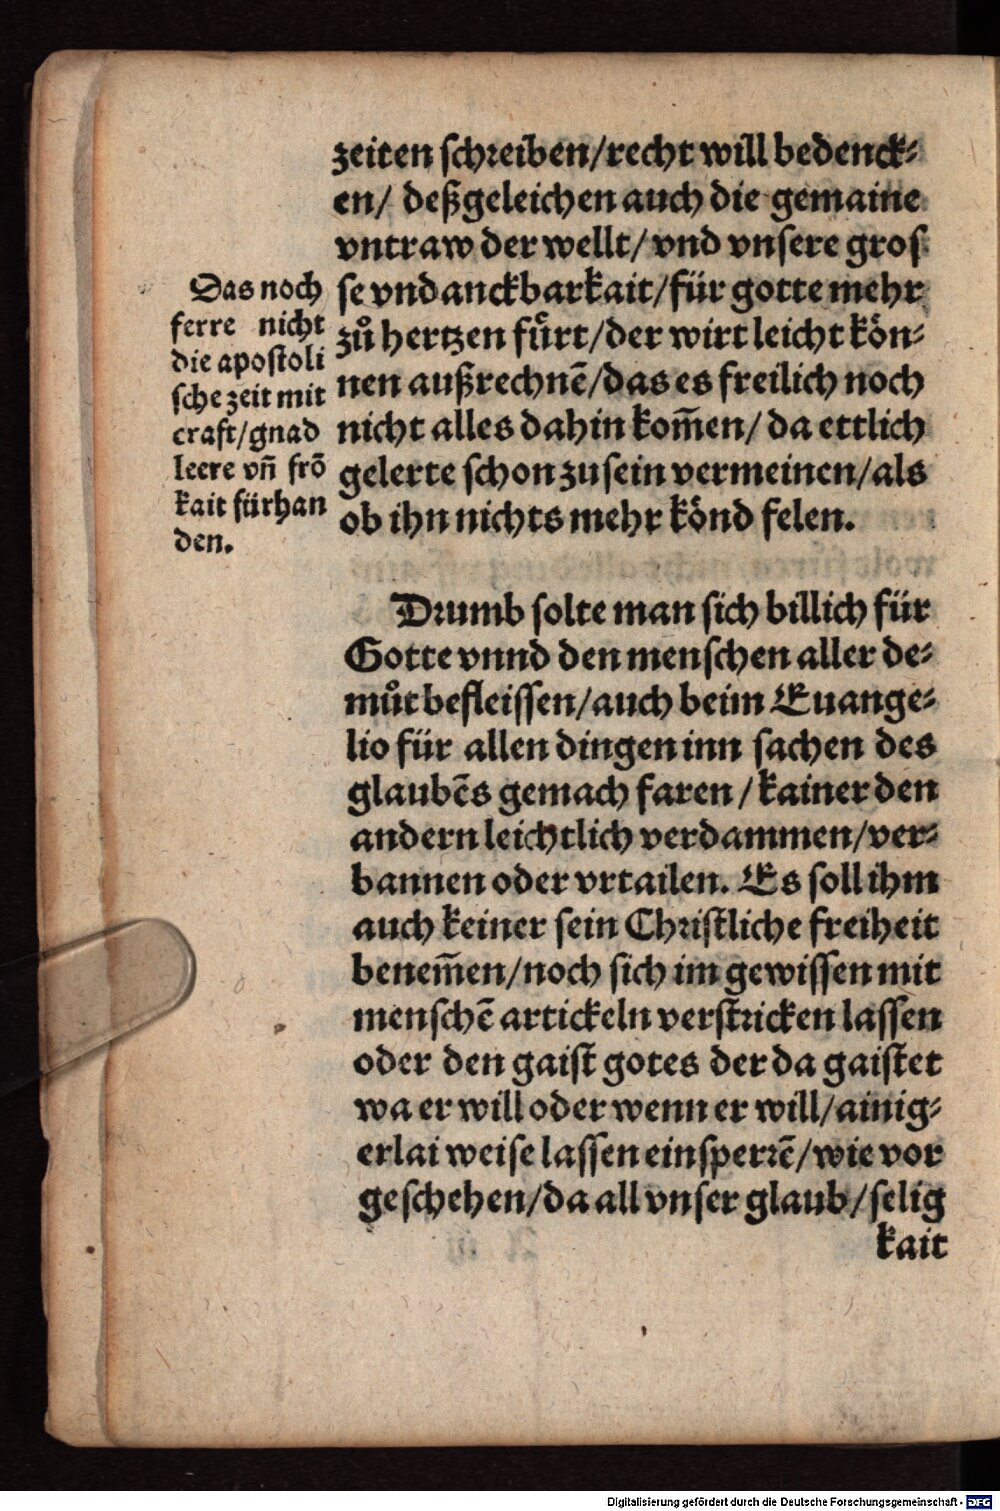 zeiten schreiben/recht will bedenck⸗
en/ deßgeleichen auch die gemaine
vntraw der wellt/ vnd vnsere gros
se vndanckbarkait/für gotte mehr
zů hertzen fuͤrt/der wirt leicht kön⸗
nen außrechnē/das es freilich noch
nicht alles dahin kom̄en/ da ettlich
gelerte schon zu sein vermeinen/als
ob ihn nichts mehr könd felen.
Das noch
ferre nicht
die apostoli
sche zeit mit
craft/gnad
leere vn̄ frō
kait fürhan
den.
Drumb solte man sich billich für
Gotte vnnd den menschen aller de⸗
můt befleissen/auch beim Euange⸗
lio für allen dingen inn sachen des
glaubēs gemach faren/kainer den
andern leichtlich verdammen/ver⸗
bannen oder vrtailen. Es soll ihm
auch keiner sein Christliche freiheit
benem̄en/noch sich im gewissen mit
menschē artickeln verstricken lassen
oder den gaist gotes der da gaistet
wa er will oder wenn er will/ainig⸗
erlai weise lassen einsperrē/wie vor
geschehen/da all vnser glaub/selig
kait
Digitalisierung gefördert durch die Deutsche Forschungsgemeinschaft - DFG